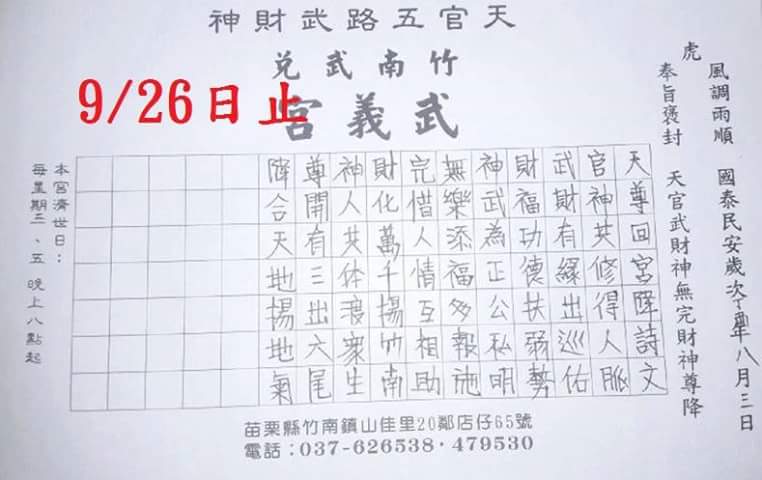 天官五路武財神
竹南武兌
武義宮
9/26日止
風調雨順 國泰民安歲次丁酉年八月三日
虎
奉旨褒封 天官武財神無完財神尊降
天尊回宮降詩文
官神共修得人脈
武財有緣出巡佑
財福功德扶弱勢
神武為正公私明
無樂添福多報施
完借人情互相助
財化萬千揚竹南
神人共体渡眾生
尊開有三出六尾
降合天地揚地氣
本宮濟世日：
每星期三、五 晚上八點起
苗栗縣竹南鎮山佳里20鄰店仔65號
電話：037-626538·479530